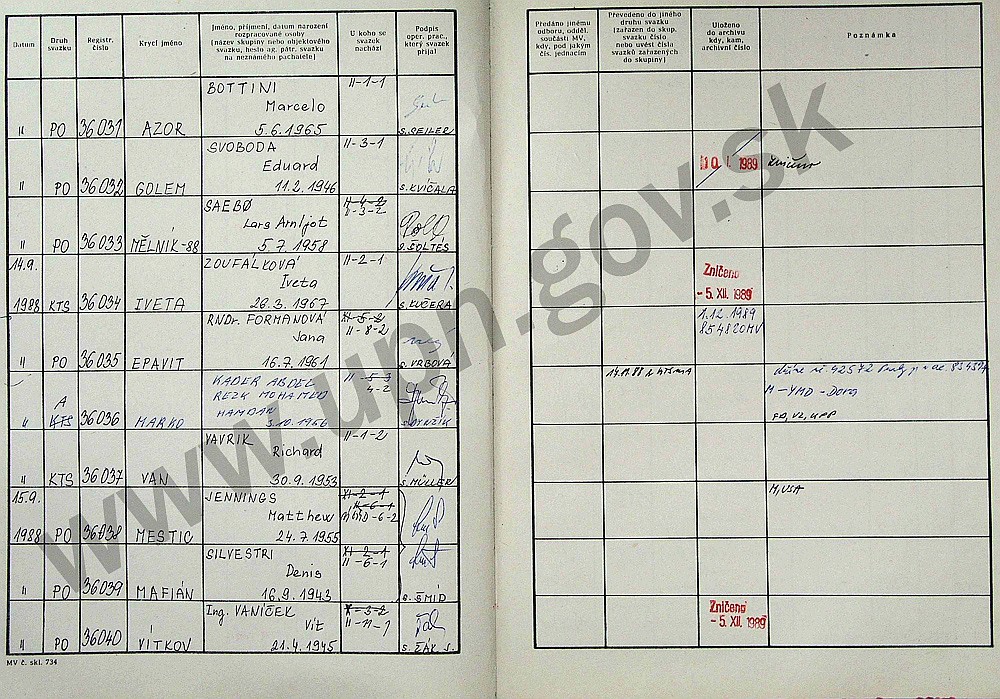 Datum
Druh svazku
Registr. číslo
Krycí jméno
Jméno, příjmení, datum narození
rozpracované osoby
(název skupiny nebo objektového
svazku, heslo ag. pátr. svazku
na neznámého pachatele)
U koho se
svazek
nachází
Podpis
oper. prac.,
který svazek
přijal
Předáno jinému
odboru, odděl.
součásti MV,
kdy, pod jakým
čís. jednacím
Převedeno do jiného
druhu svazku
(zařazen do skup.
svazku číslo
nebo uvést čísla
svazků zařazených
do skupiny)
Uloženo
do archivu
kdy, kam,
archivní číslo
Poznámka
BOTTINI II-1-1
Marcelo
" PO 36031 AZOR 5.6.1965 S.SEILER
SVOBODA II-3-1
Eduard
" PO 36032 GOLEM 11.2.1946 S.KVÍČALA
1989
SAEBØ II-4-2
II-3-2
Lars Arnljot
" PO 36033 MĚLNÍK-88 5.7.1958 ŠOLTÉS
14.9. ZOUFÁLKOVÁ II-2-1
Iveta
1988 KTS 36034 IVETA 26.3.1967 S.KUČERA
Zničeno
- 5. XII. 1989
RNDr. FORMANOVÁ XI-5-2
II-8-2
Jana
" PO 36035 EPAVIT 16.7.1961 S.VRBOVÁ
1.12.1989
KADER ABDEL II-5-3
REZK MOHAMED 4-2
A HAMDAN
" KTS 36036 MARKO 3.10.1966
14.11.88
M-YMD-Dora
VAVRIK II-1-2
Richard
" KTS 36037 VAN 30.9.1953 S.MÜLLER
15.9. JENNINGS XI-2-1
Matthew
1988 PO 36038 MESTIC 24.7.1955
M, USA
SILVESTRI XI-2-1
II-6-1
Denis
" PO 36039 MAFIÁN 16.9.1943 S.ŠMÍD
Ing. VANÍČEK X-3-2
II-11-1
Vít
" PO 36040 VÍTKOV 21.4.1945 S.ŽÁK S.
Zničeno
- 5. XII. 1989
MV č. skl. 734
www.upn.gov.sk